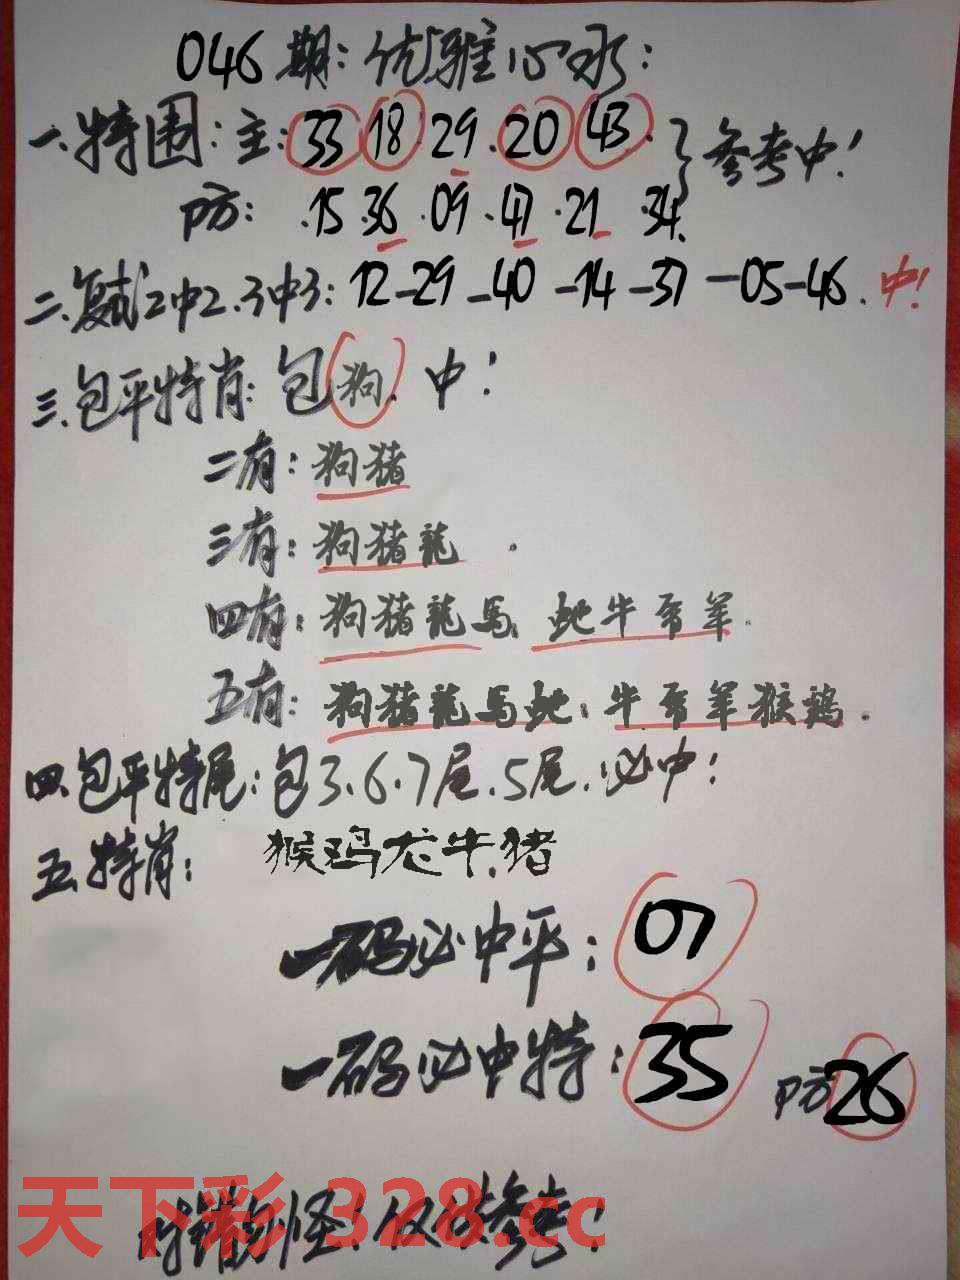 046期:优雅心水:
一.特围:主:33 18 29.20 43.}参考中!
防: .15.36.09.47.21.34.
二.复式2中2.3中3:12-29-40-14-37-05-46.中!
三.包平特肖:包狗.中!
二有:狗猪
三有:狗猪龍.
四有:狗猪龍馬.蛇牛兔羊.
五有:狗猪龍馬蛇.牛兔羊猴鷄.
四.包平特尾:包3.6.7尾.5尾.必中!
五.特肖:猴鸡龙牛.猪
一码必中平:07
一码必中特:35 防26
对错勿怪!仅供参考!
天下彩 328.cc